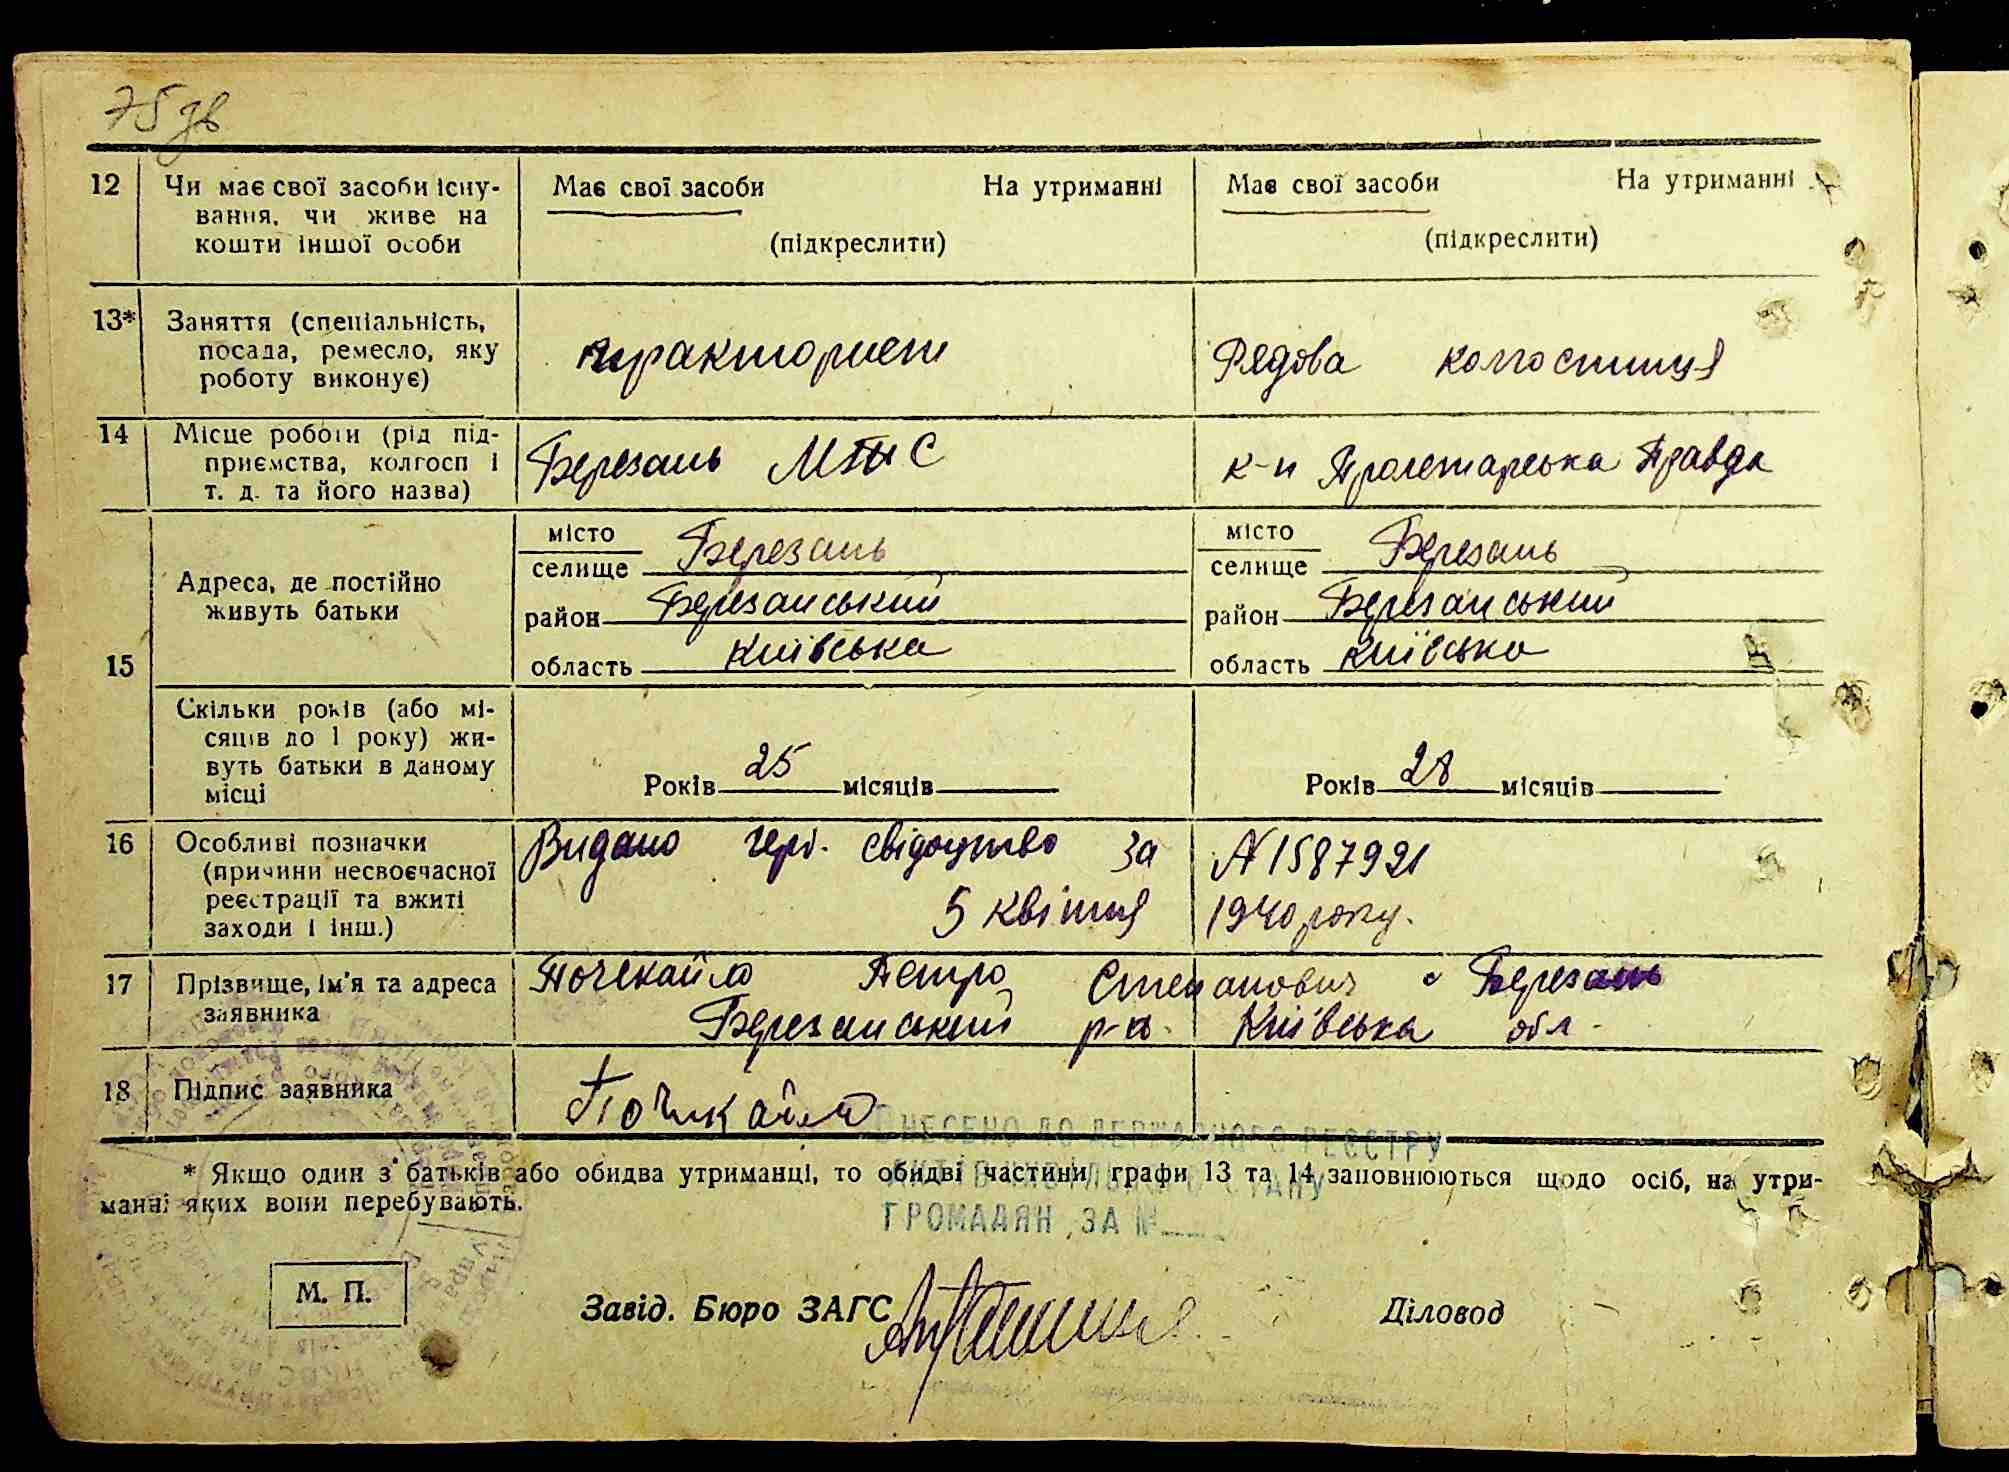 75 зв
12 Чи має свої засоби існу-
вання, чи живе на
кошти іншої особи
Має свої засоби На утриманні
(підкреслити)
Має свої засоби На утриманні
(підкреслити)
13* Заняття (спеціальність,
посада, ремесло, яку
роботу виконує)
тракторист
Рядова колгоспниця
14 Місце роботи (рід під-
приємства, колгосп і
т. д. та його назва)
Березань
к-п Пролетарська Правда
15 Адреса, де постійно
живуть батьки
місто
селище Березань
район Березанський
область Київська
місто
селище Березань
район Березанський
область Київська
Скільки років (або мі-
сяців до 1 року) жи-
вуть батьки в даному
місці
Років 25 місяців
Років 28 місяців
16 Особливі позначки
(причини несвоєчасної
реєстрації та вжиті
заходи і інш.)
Видано свідоцтво за N 1587921
5 квітня 1940 року.
17 Прізвище, ім'я та адреса
заявника
Почекайло Петро Степанович с Березань
Березанський р-н. Київська обл.
18 Підпис заявника
Почикайло
ВНЕСЕНО ДО ДЕРЖАВНОГО РЕЄСТРУ
АКТІВ ЦИВІЛЬНОГО СТАНУ
ГРОМАДЯН ЗА №
* Якщо один з батьків або обидва утриманці, то обидві частини графи 13 та 14 заповнюються щодо осіб, на утри-
манні яких вони перебувають.
М. П.
Завід. Бюро ЗАГС
Діловод